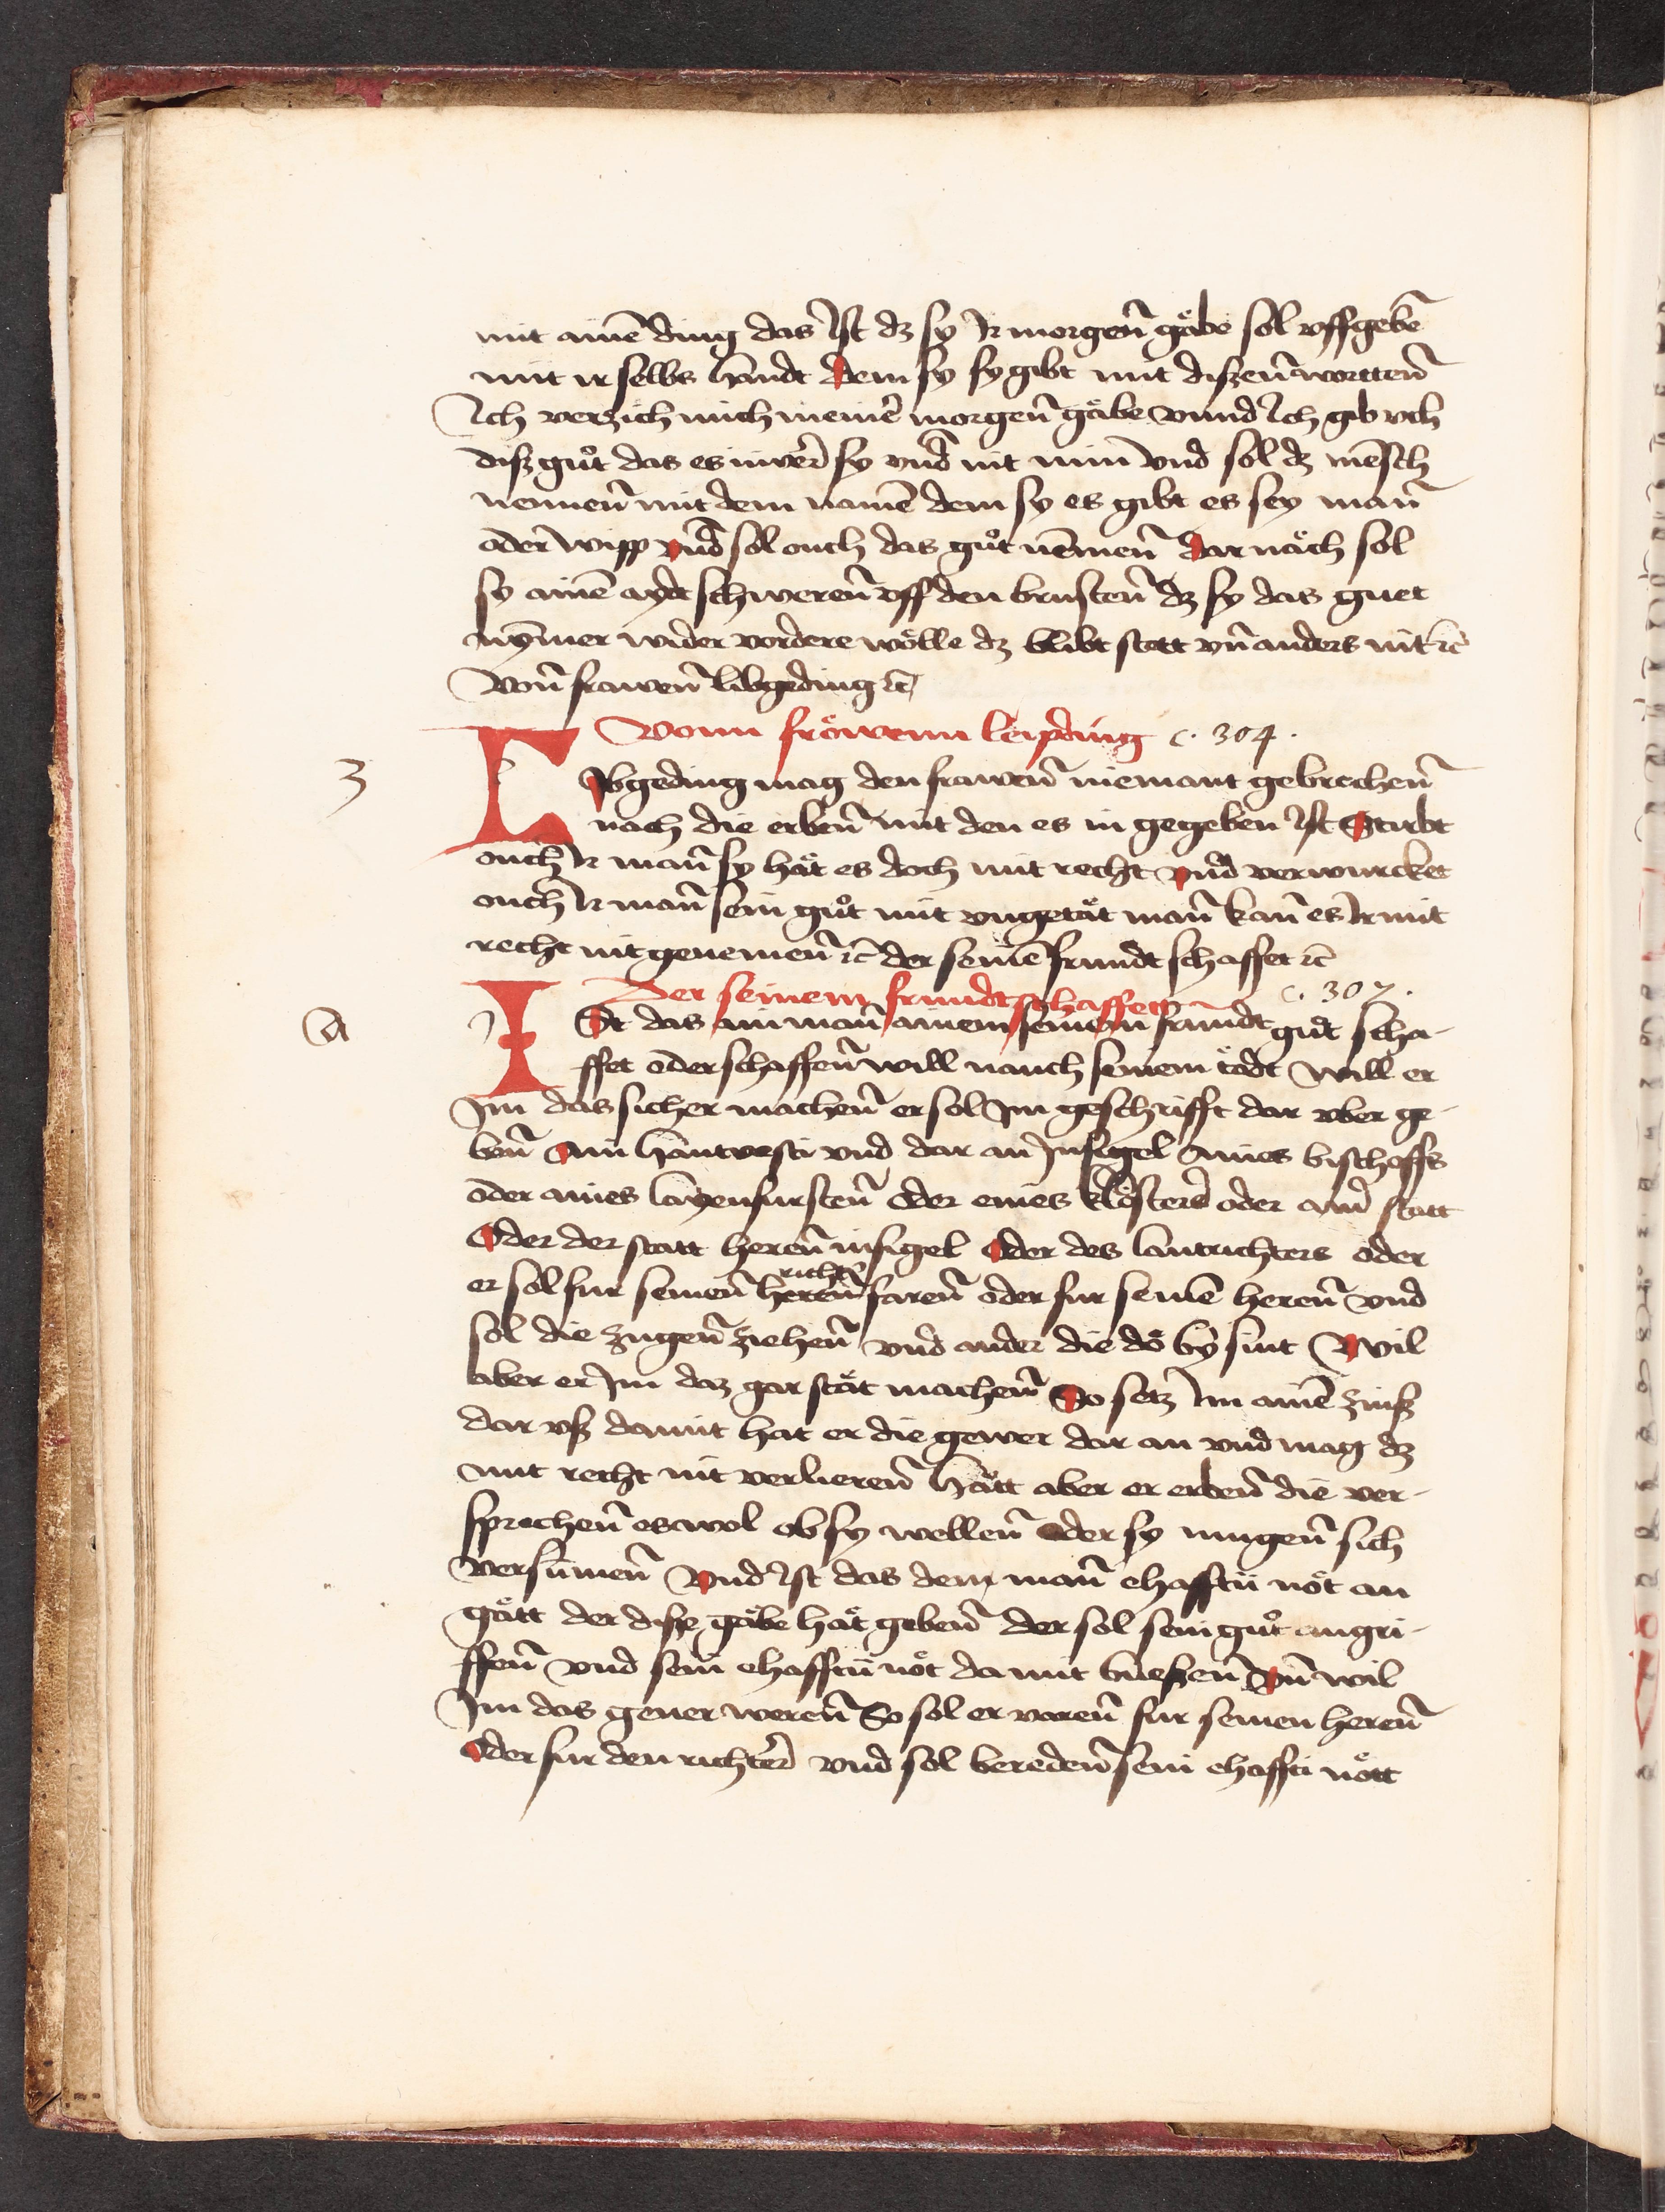 mit ainē ding das Ist dz sy Ir morgen̄ gäbe sol vffgebē
mit ir selbs handt dem sy sy gibt mit diszen̄ wortten̄
Ich verzich mich meinē morgen̄ gäbe vnnd Ich gib vch
disz gůt das es inwer sy vnd nit min vnd sol dz mēsch
nennen̄ mit dem namē dem sy es gibt es sey man̄
oder wipp vnd sol ouch das gůt nēmen̄ dar näch sol
sy ainē aydt schweren̄ vff den brusten̄ dz sy das guet
nȳmer wider vordere wölle dz blibt stett vn̄ anders nit ꝛc̄
Von̄ frawen̄ libgeding ꝛc̄
Vonn fröwenn leypding c. 304.
3
Libgeding mag den frawen̄ niemant gebrechen̄
nach die erben̄ mit den es in gegeben Ist Stirbt
ouch Ir man̄ sy hät es doch mit recht vnd verwurcket
ouch Ir man̄ sein gůt mit vngetät man̄ kan̄ es Ir mit
recht nit genemen̄ ꝛc̄ der seinē frundt schaffet ꝛc̄
Der seinem frundt schaffett c. 307.
a
Ist das ain man̄ ainem seinem frundt gůt scha-
ffet oder schaffen̄ will nauch seinem tödt will er
Im das sicher machen̄ er sol Im geschrifft dar vber ge-
ben̄ Ain hantvesti vnd dar an Insigel Aines bischoffs
oder aines layenfursten̄ oder eines klösters oder ainr statt
Oder der statt heren̄ insigel oder des lantrichters oder
er sol fur seinen̄ heren̄ richter faren̄ oder fur seinē heren̄ vnd
sol die zugen̄ ziehen̄ vnd ander die dö by sint Wil
aber er Im daz gar stät machen̄ So setz Im ainē zinsz
dar vsz damit hat er die gewer dar an vnd mag dz
mit recht nit verlieren̄ Hätt aber er erben̄ die ver-
sprechen̄ es wol ob sy wellen̄ oder sy mugen̄ sich
versumen̄ Vnd Ist das dem man̄ ehafftü nöt an
gätt der disze gäbe hät geben̄ der sol sein gůt angri-
ffen̄ vnd sein ehafftü nöt da mit bueszen̄ Vn̄ wil
Im das gener weren̄ So sol er varen̄ fur seinen heren̄
Oder fur den richter vnd sol bereden̄ sein ehaffti nött